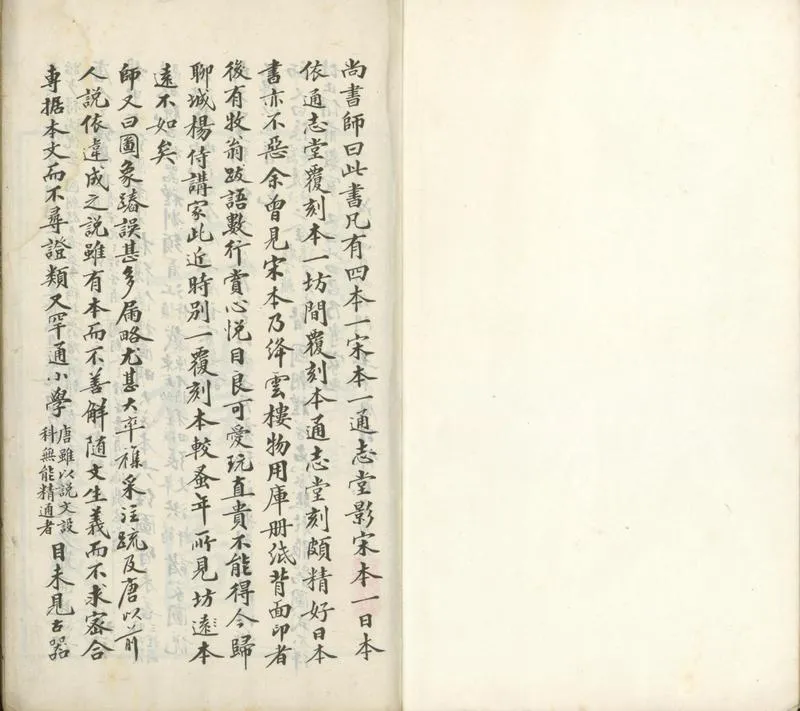 尚書師曰此書凡有四本一宋本一通志堂影宋本一日本
依通志堂覆刻本一坊間覆刻本通志堂刻頗精好日本
書亦不惡余曾見宋本乃絳雲樓物用庫册紙背面印者
後有牧翁跋語數行賞心悅目良可愛玩直貴不能得今歸
聊城楊侍講家此近時別一覆刻本較蚤年所見坊本
遠不如矣
師又曰圖象踳誤甚多屚略尤甚大卒襍采注疏及唐以前
人説依違成之説雖有本而不善解随文生義而不求密合
專据本文而不尋證類又罕通小學
唐雖以説文設
科無能精通者
目未見古器